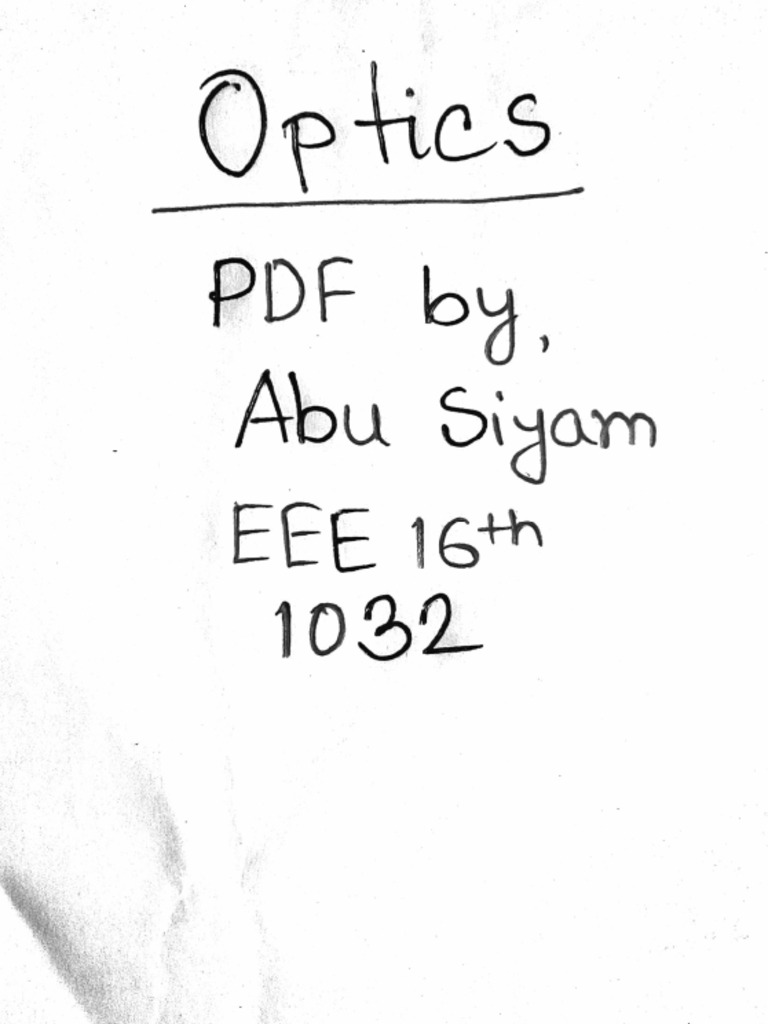 Optics
PDF by,
Abu Siyam
EEE 16th
1032